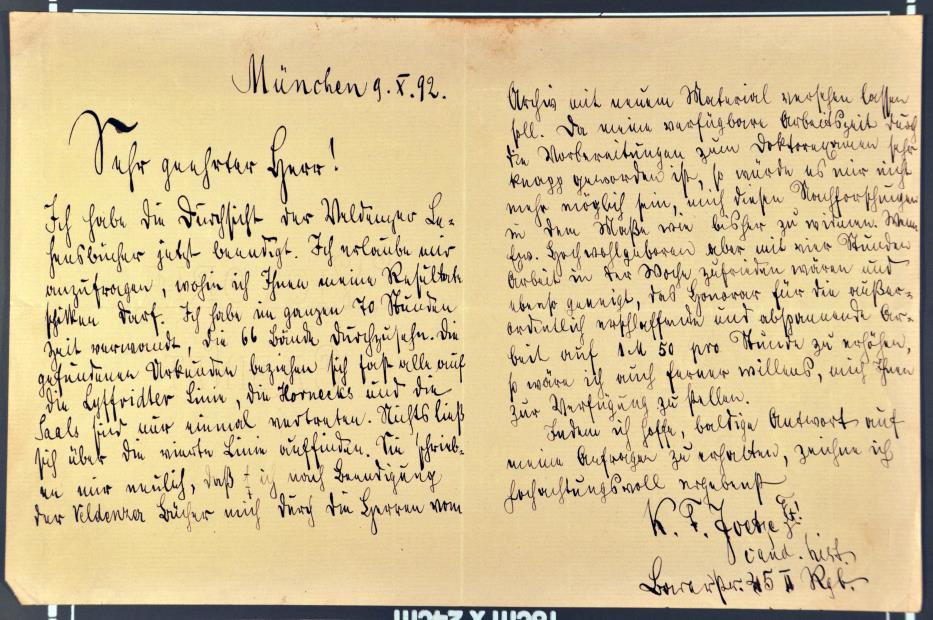 München 9. X. 92.
Sehr geehrter Herr!
Ich habe die Durchsicht der Veldenzer Le-
hensbücher jetzt beendigt. Ich erlaube mir
anzufragen, wohin ich Ihnen meine Resultate
schicken darf. Ich habe im ganzen 70 Stunden
Zeit verwandt, die 66 Bände durchzusehn. Die
gefundenen Urkunden beziehen sich fast alle auf
die Linie, die Hornecks und die
Saals sind nur einmal vertreten. Nichts ließ
sich über die vierte Linie auffinden. Sie schrieb-
en mir neulich, daß ich nach Beendigung
der Veldenzer Bücher mich durch die Herren vom
Archiv mit neuem Material versehen lassen
soll. Da meine verfügbare Arbeitszeit durch
die Vorbereitungen zum Doktorexamen sehr
knapp geworden ist, so würde es mir nicht
mehr möglich sein, mich diesen Nachforschungen
in dem Maße wie bisher zu widmen. Wenn
Ew. Hochwohlgeboren aber mit vier Stunden
Arbeit in der Woche zufrieden wären und
ebenso geneigt, das Honorar für die außer-
ordentlich erschlaffende und abspannende Ar-
beit auf 1 M 50 pro Stunde zu erhöhen,
so wäre ich auch ferner willens, mich Ihnen
zur Verfügung zu stellen.
Indem ich hoffe, baldige Antwort auf
meine Anfragen zu erhalten, zeichne ich
hochachtungsvoll ergebenst
K. F.
cand. hist.
45 II Rgb.